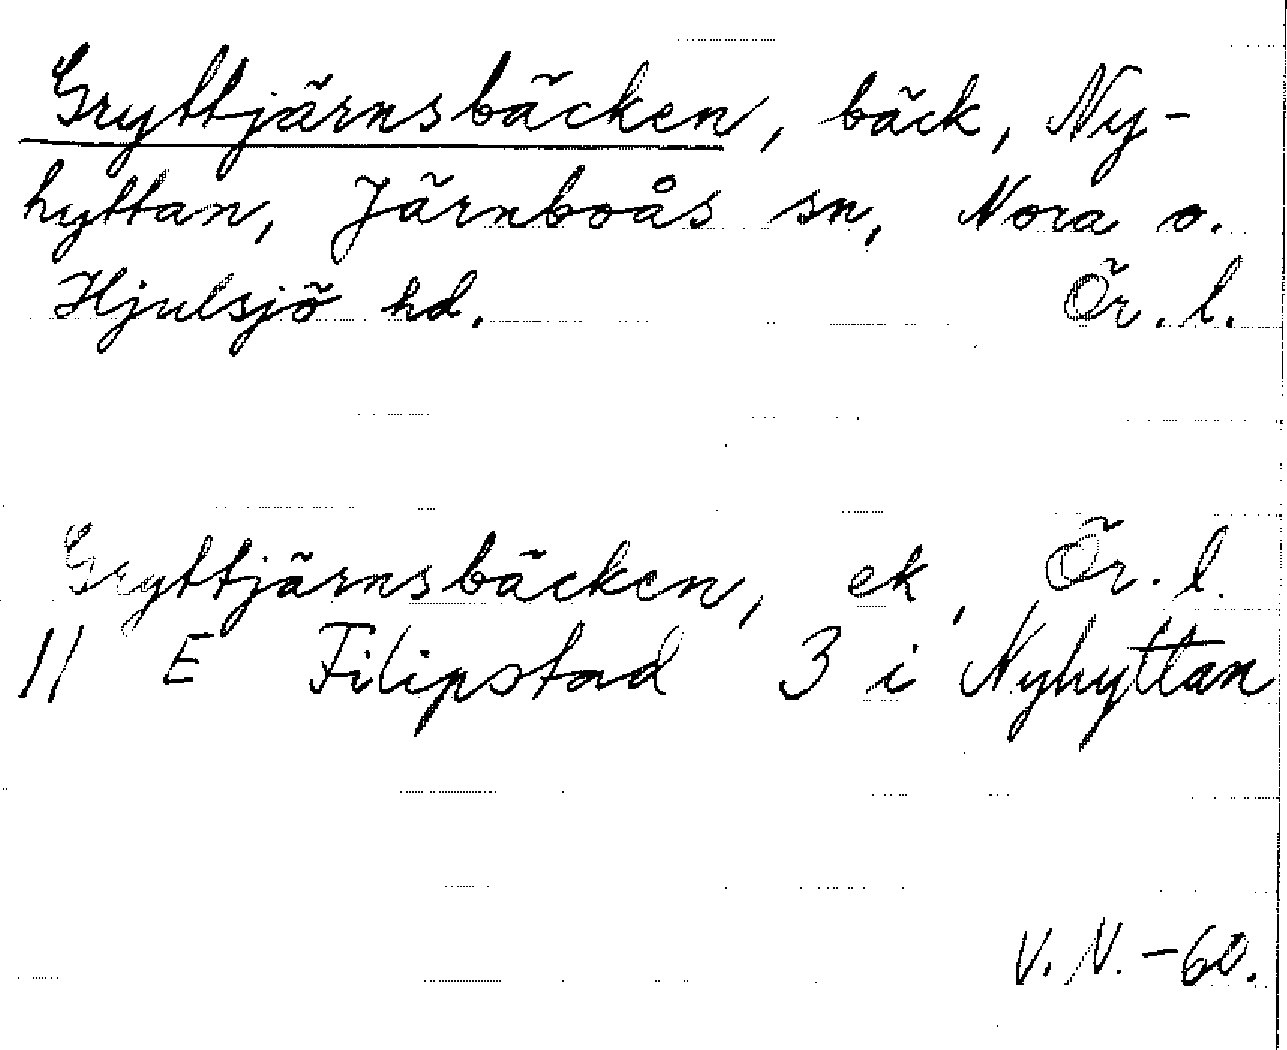 Gryttjärnsbäcken, bäck, Ny-
hyttan, Järnboås sn, Nora o.
Hjulsjö hd. Ör. l.
Gryttjärnsbäcken, ek, Ör. l.
11 E Filipstad 3 i Nyhyttan
V. N. -60.